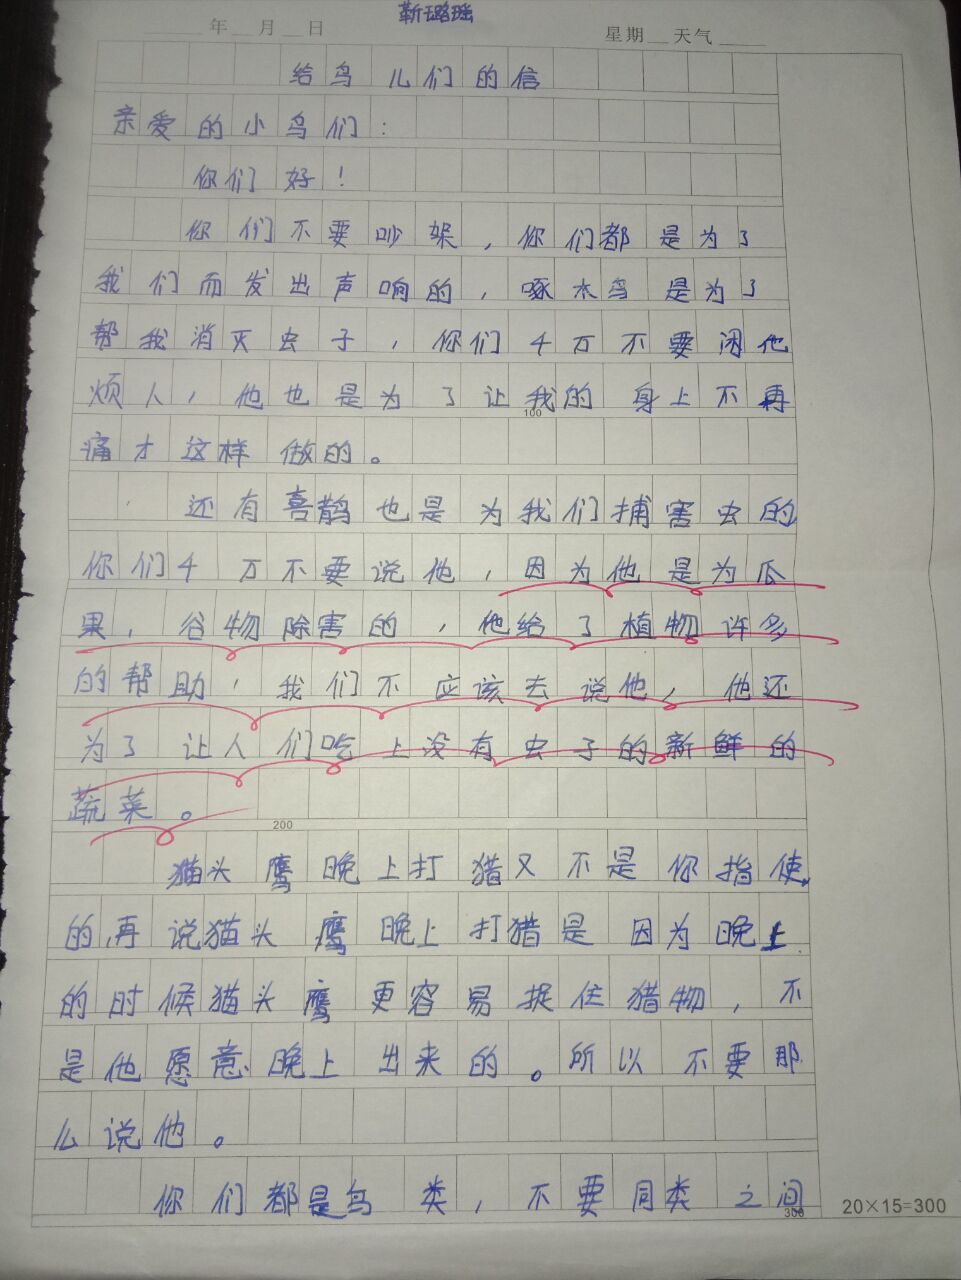 靳璐瑶
年 月 日 星期 天气
给鸟儿们的信
亲爱的小鸟们：
你们好！
你们不要吵架，你们都是为了
我们而发出声响的，啄木鸟是为了
帮我消灭虫子，你们4万不要闲他
烦人，他也是为了让我的身上不再
100
痛才这样做的。
还有喜鹊也是为我们捕害虫的
你们4万不要说他，因为他是为瓜
果，谷物除害的，他给了植物许多
的帮助，我们不应该去说他，他还
为了让人们吃上没有虫子的新鲜的
蔬菜。
200
猫头鹰晚上打猎又不是你指使
的，再说猫头鹰晚上打猎是因为晚上
的时候猫头鹰更容易捉住猎物，不
是他愿意晚上出来的。所以不要那
么说他。
你们都是鸟类，不要同类之间
300
20×15=300